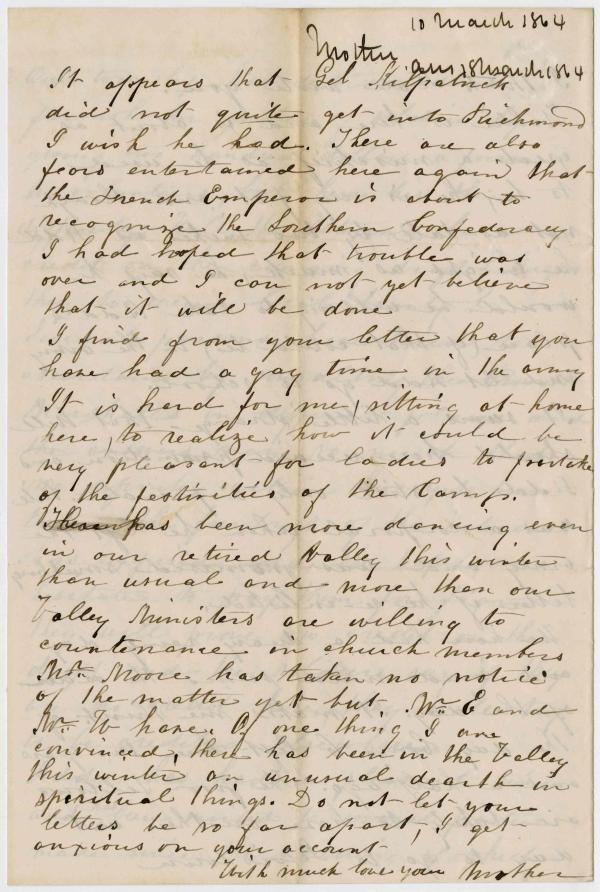 10 March 1864
Mother
ans 18 March 1864
It appears that Gel Kilpatrick
did not quite get into Richmond
I wish he had. There are also
fears entertained here again that
the French Emperor is about to
recognize the Southern Confederacy
I had hoped that trouble was
over and I can not yet believe
that it will be done
I find from your letter that you
have had a gay time in the army
It is hard for me, sitting at home
here, to realize how it could be
very pleasant for ladies to partake
of the festivities of the Camp.
There has been more dancing even
in our retired Valley this winter
than usual and more than our
Valley Ministers are willing to
countenance in church members
Mr. Moore has taken no notice
of the matter yet but Mr. E and
Mr. W have. Of one thing I am
convinced, there has been in the Valley
this winter an unusual dearth in
spiritual things. Do not let your
letters be so far apart, I get
anxious on your account
With much love your Mother